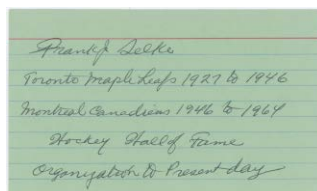 Frank J Selke
Toronto Maple Leafs 1927 to 1946
Montreal Canadiens 1946 to 1964
Hockey Hall of Fame
Organization to Present day